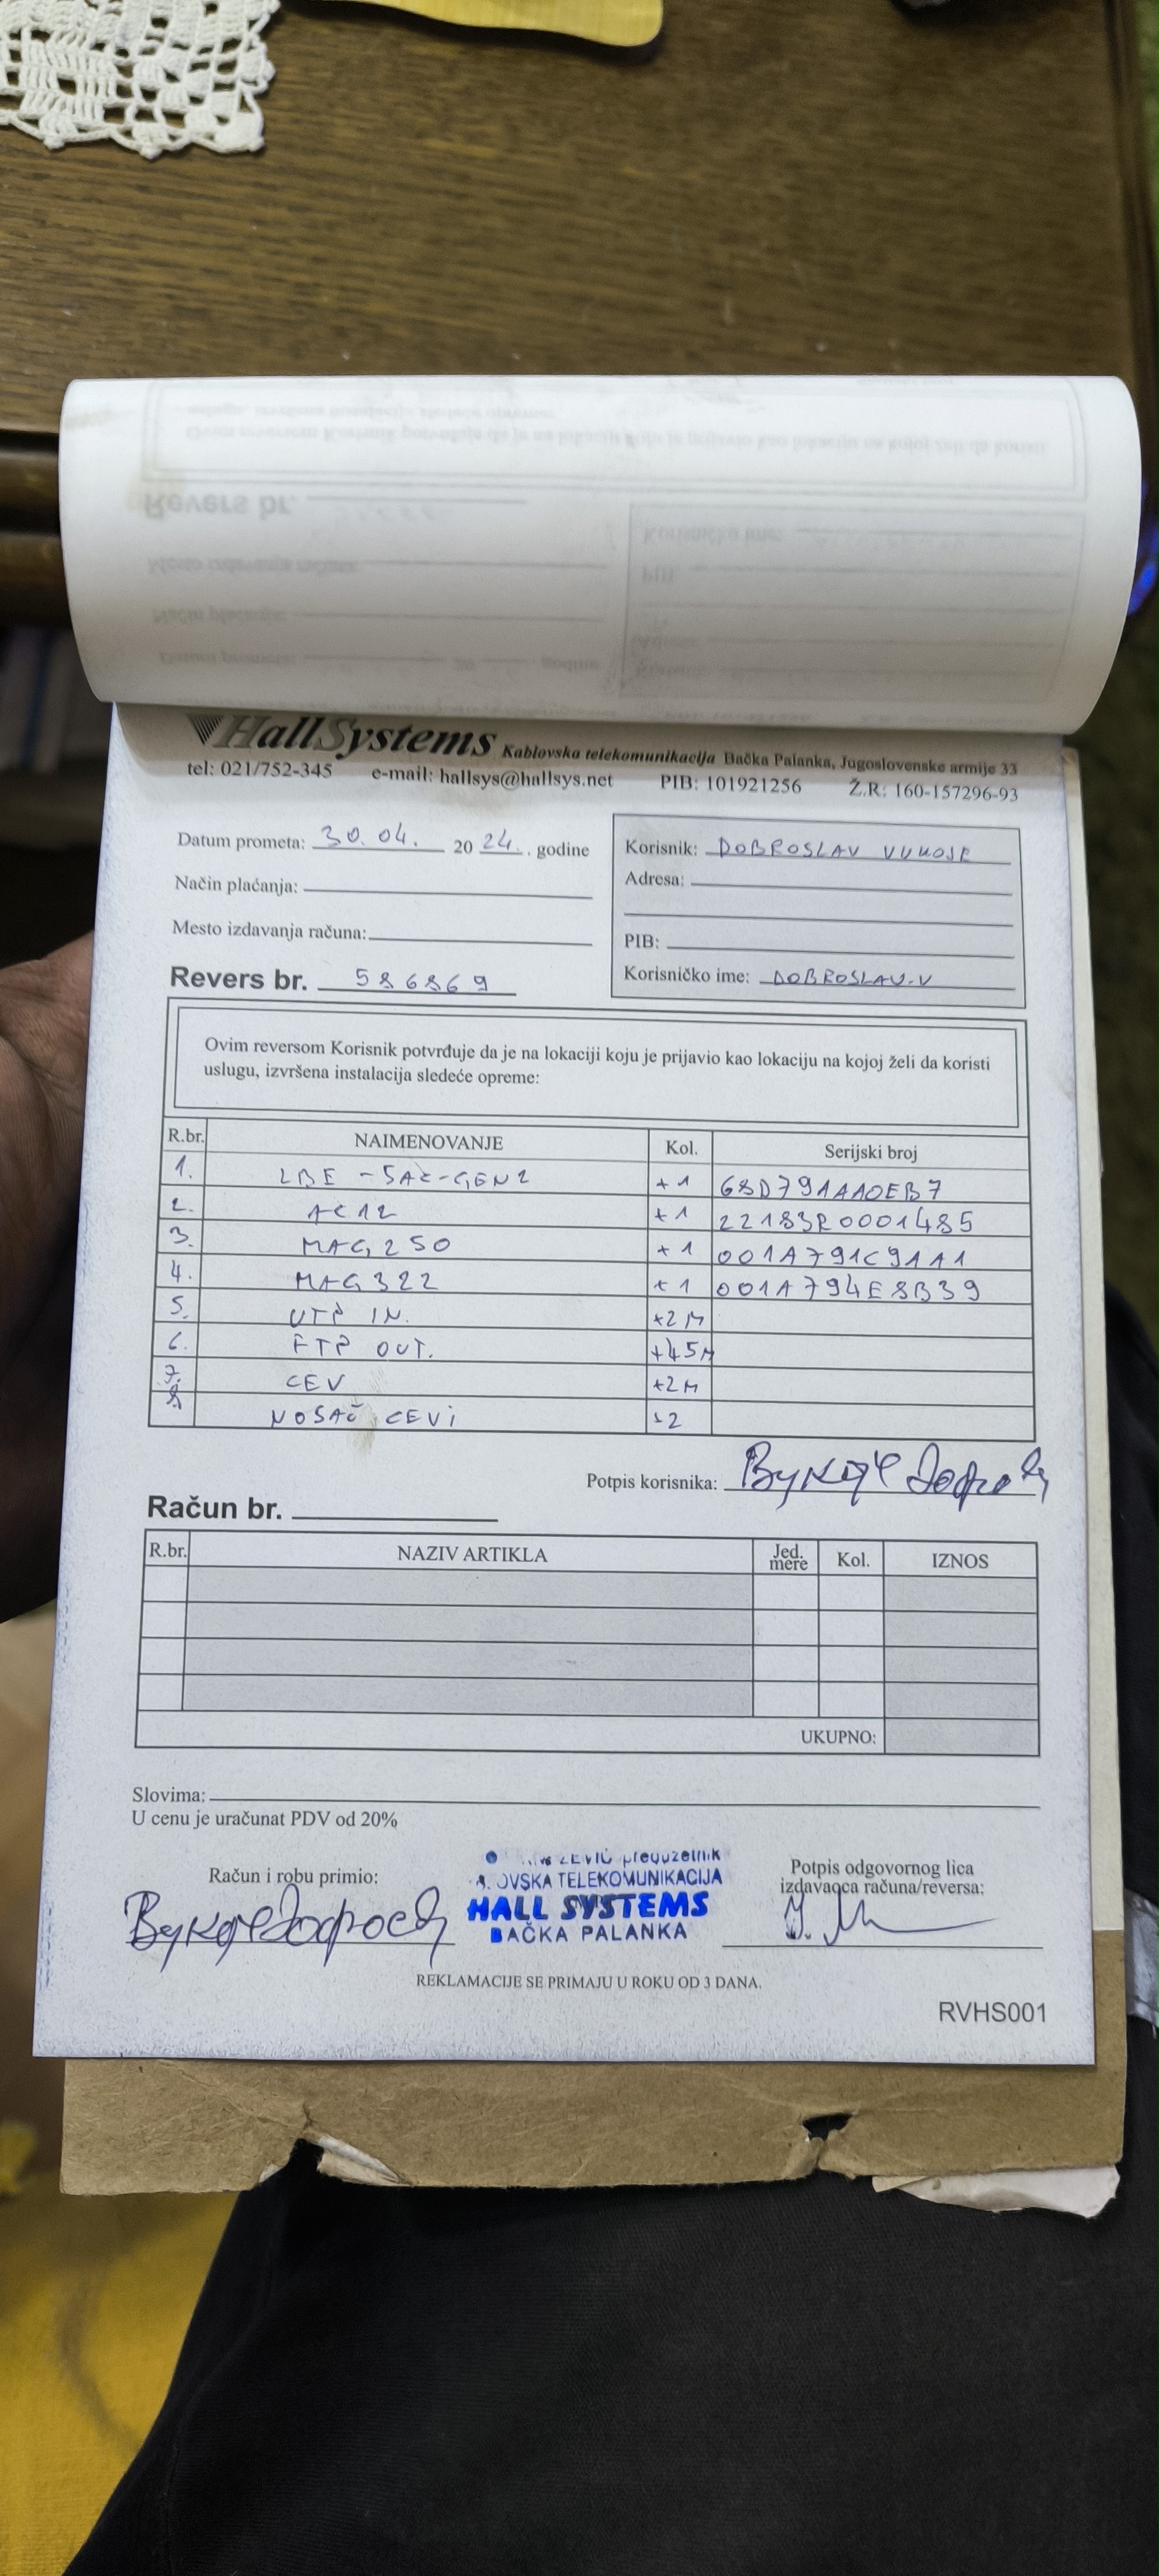 HallSystems Kablovska telekomunikacija Bačka Palanka, Jugoslovenske armije 33
tel: 021/752-345 e-mail: hallsys@hallsys.net PIB: 101921256 Ž.R: 160-157296-93
Datum prometa: 30.04. 20 24. . godine
Način plaćanja:
Mesto izdavanja računa:
Revers br. 586869
Korisnik: DOBROSLAV VUKOJE
Adresa:
PIB:
Korisničko ime: DOBROSLAV.V
Ovim reversom Korisnik potvrđuje da je na lokaciji koju je prijavio kao lokaciju na kojoj želi da koristi
uslugu, izvršena instalacija sledeće opreme:
R.br. NAIMENOVANJE Kol. Serijski broj
1. LBE -5AC-GEN2 +1 68D791AA0EB7
2. AC12 +1 22183R0001485
3. MAG250 +1 001A791C91A1
4. MAG322 +1 001A794E8B39
5. UTP IN. +2M
6. FTP OUT. +45M
7. CEV +2M
8. NOSAČ CEVI +2
Potpis korisnika: Вукоје
Račun br.
R.br. NAZIV ARTIKLA Jed. mere Kol. IZNOS
UKUPNO:
Slovima:
U cenu je uračunat PDV od 20%
Račun i robu primio:
preduzetnik
TELEKOMUNIKACIJA
HALL SYSTEMS
BAČKA PALANKA
Potpis odgovornog lica
izdavaoca računa/reversa:
REKLAMACIJE SE PRIMAJU U ROKU OD 3 DANA.
RVHS001